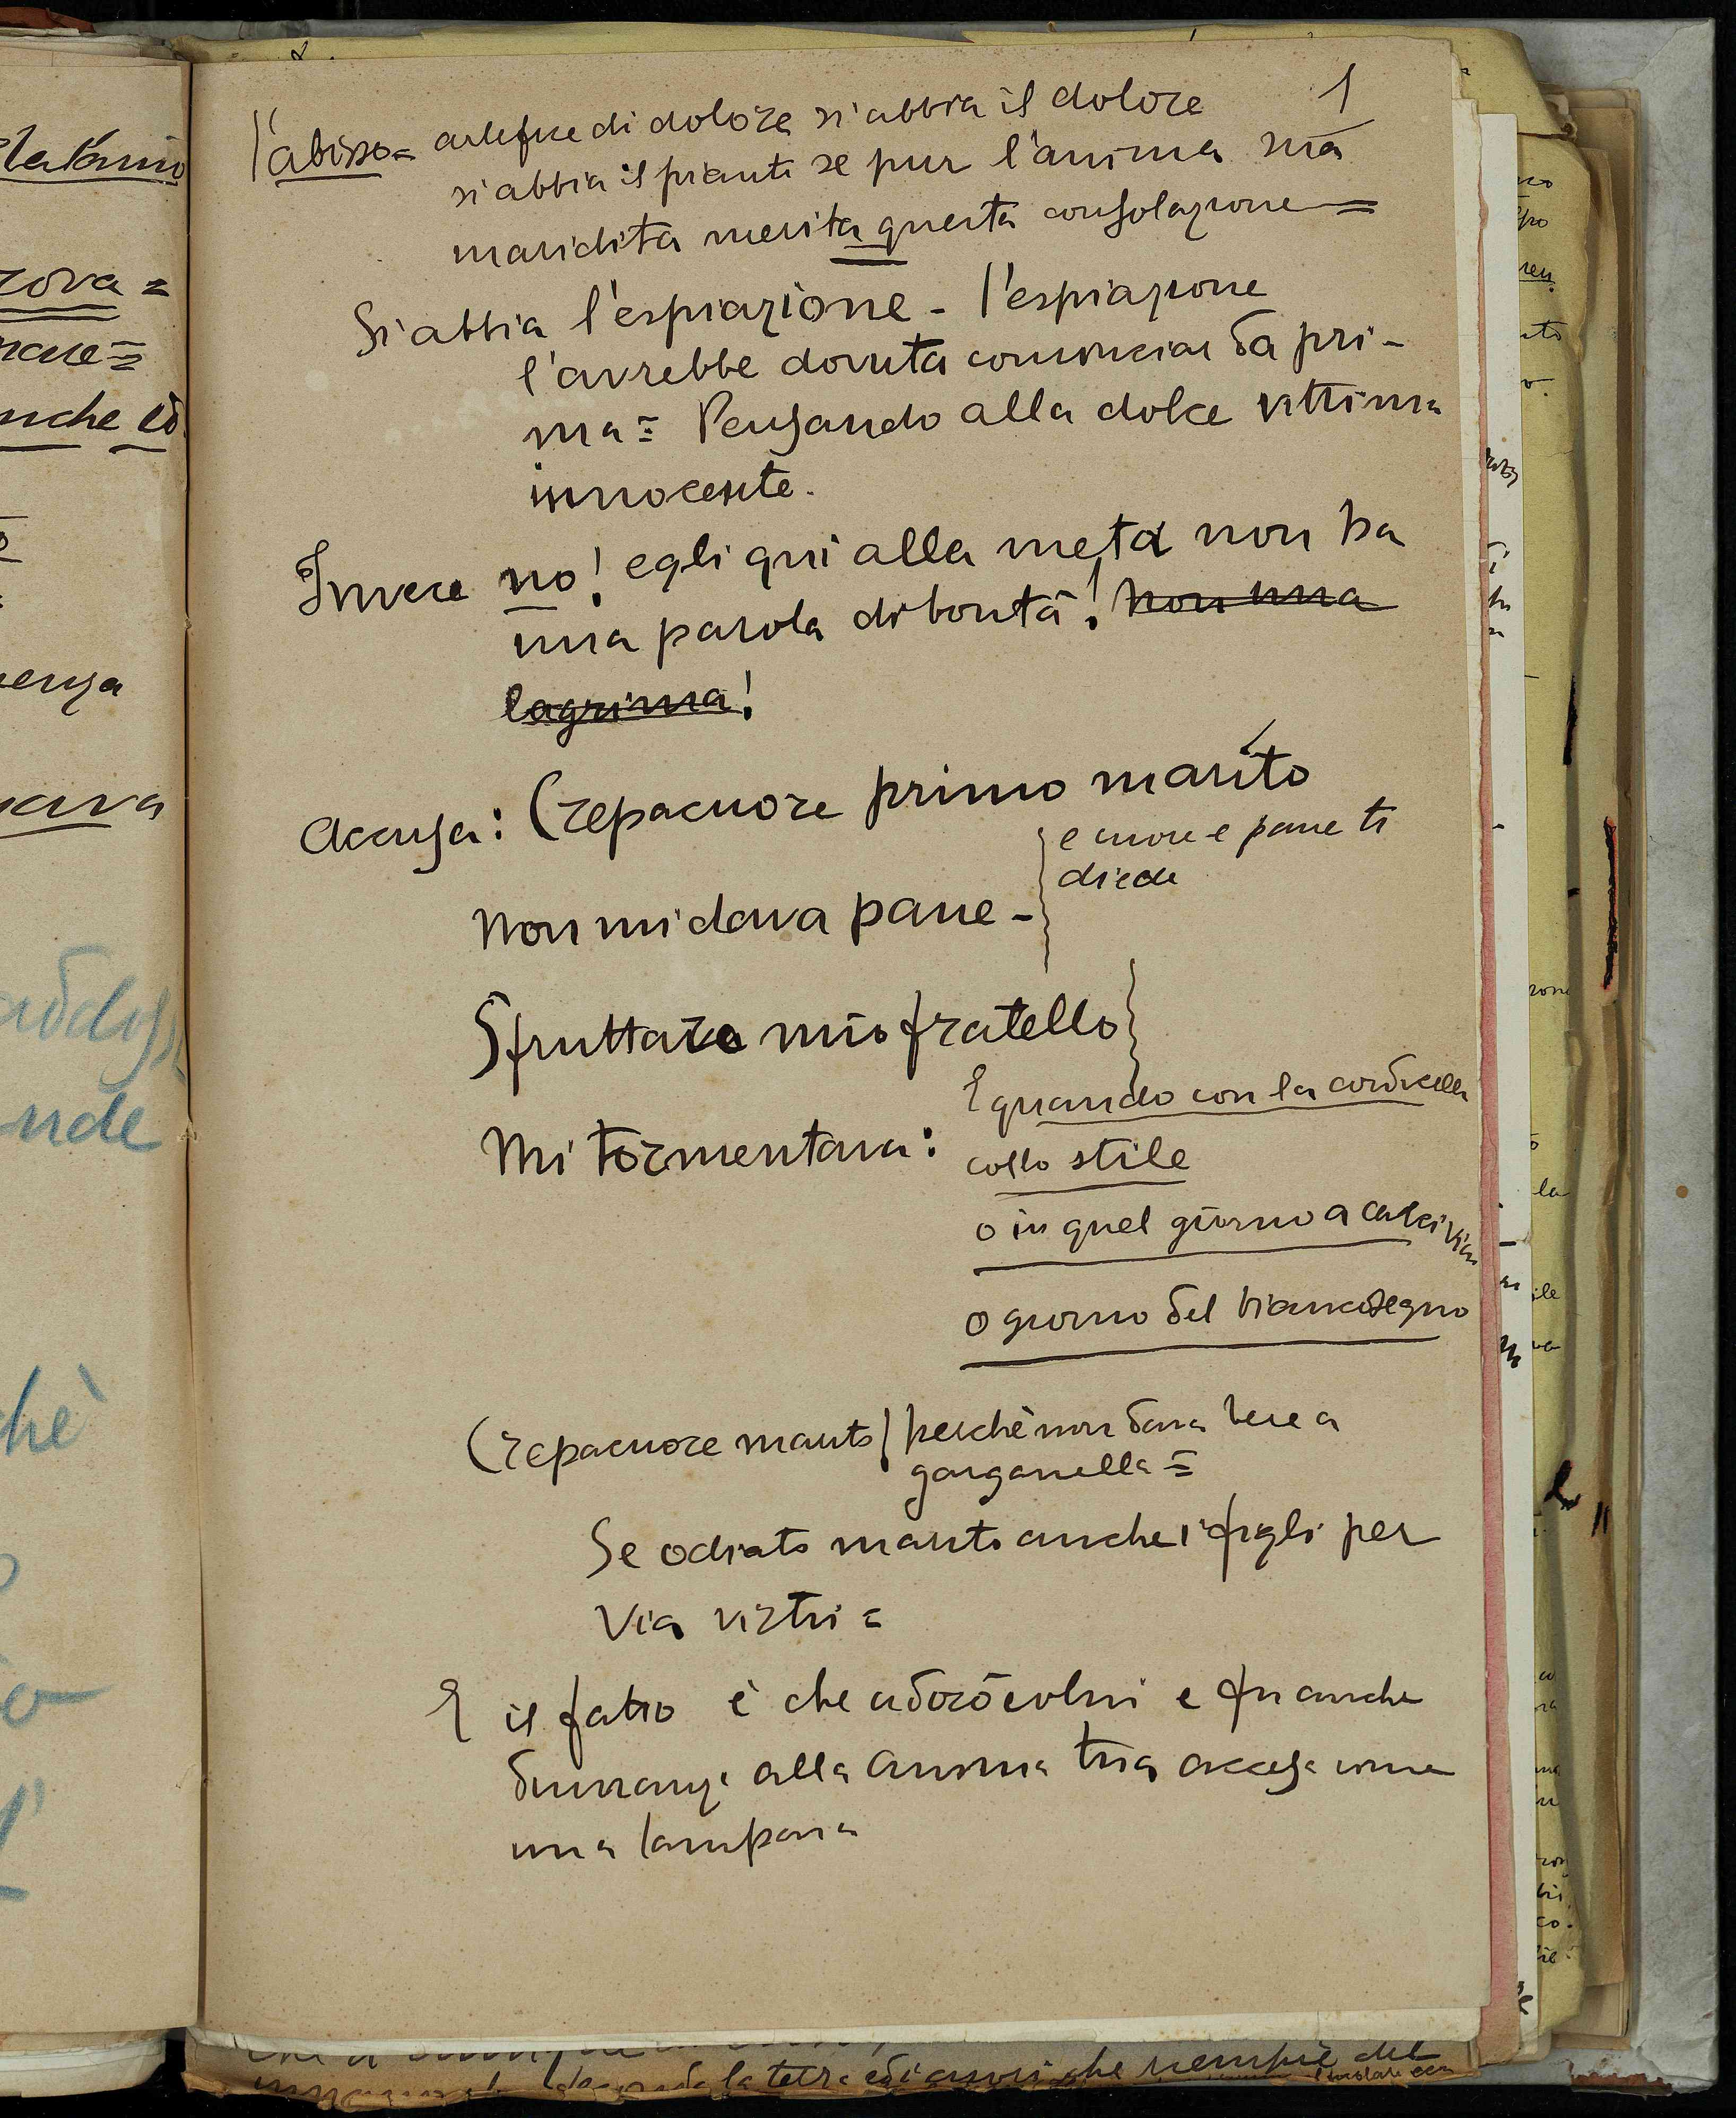 1
l'abisso = artefice di dolore si abbia il dolore
si abbia il pianto se pur l'anima sua
inaridita merita questa consolazione =
Si abbia l'espiazione - l'espiazione
l'avrebbe dovuta cominciar da pri-
ma = Pensando alla dolce vittima
innocente.
Invece no! egli qui alla meta non ha
una parola di bontà! non una
lagrima!
Accusa: Crepacuore primo marito
e cuore e pane ti
diede
non mi dava pane -
Sfruttare mio fratello
Mi tormentava:
E quando con la cordicella
collo stile
o in quel giorno a
o giorno del
Crepacuore marito perchè non dava bere a
garganella =
Se odiato marito anche i figli per
via virtù =
E il fatto è che adorò colui e fu anche
dinnanzi alla anima tua accesa come
una lampana